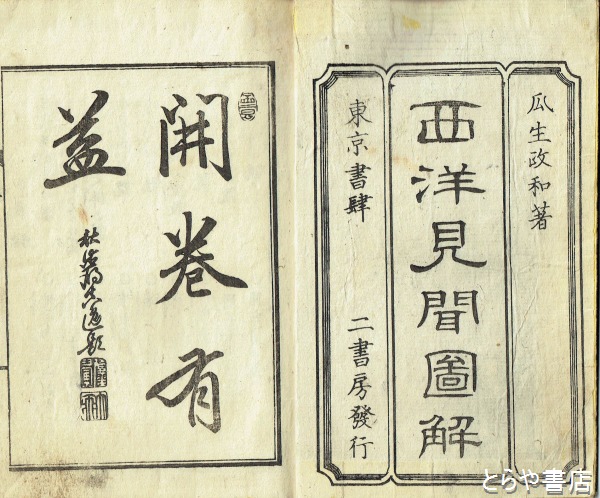 瓜生政和著
西洋見聞圖解
東京書肆　二書房發行
開卷有
益
とらや書店